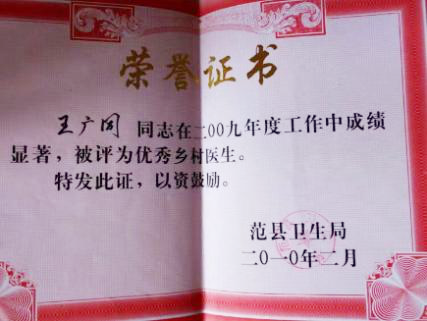 荣誉证书
王广同 同志在二00九年度工作中成绩
显著，被评为优秀乡村医生。
特发此证，以资鼓励。
范县卫生局
二0一0年二月